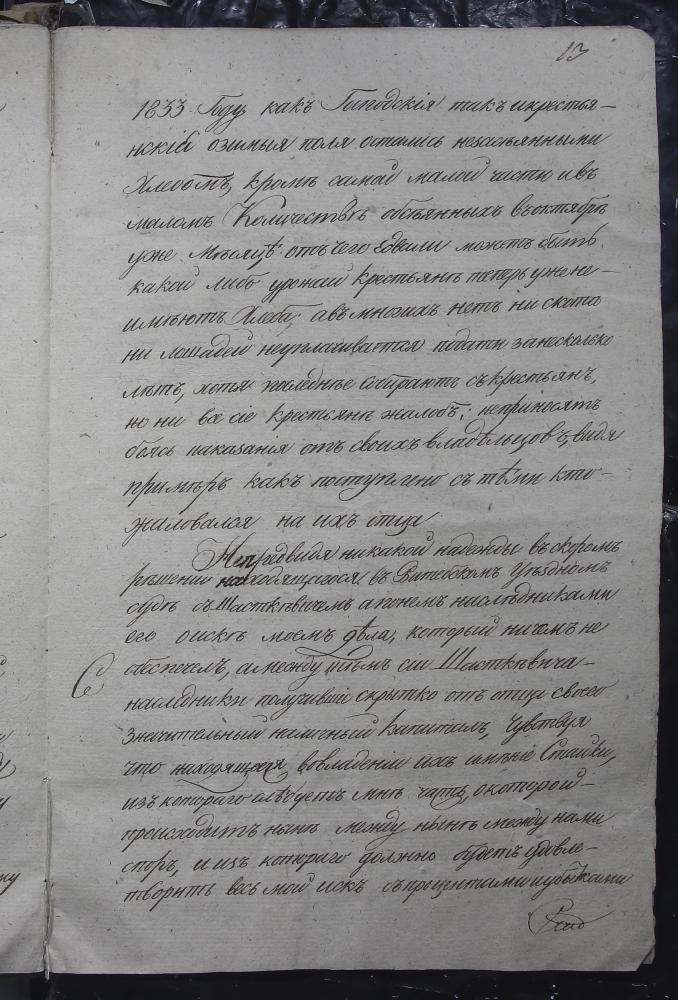 13
1833 Году какъ Господскія такъ икрестья-
нскій озимыя поля остались незасѣянными
Хлебомъ, кромѣ самой малой части ивъ
маломъ Количествѣ обсѣянныхъ въоктябрѣ
уже Мѣсяцѣ отъ чего едвали можетъ быть
какой либо урожай крестьянѣ теперь уже не-
имѣютъ Хлеба, авъ многихъ нетъ ни скота
ни лошадей неуплачивается подати занесколько
лѣтъ, хотя последнѣе собираютъ съкрестьянъ,
но ни все сіе крестьянѣ жалобъ, неприносятъ
боясь наказанія отъ своихъ владѣльцовъ, видя
примѣръ какъ поступлено съ тѣми кто-
жаловался на ихъ отца
Непредвидя никакой надежды въ скоромъ
рѣшеніи находящагося въ Витебскомъ Уѣздномъ
судѣ съ Шасткѣвичемъ апонемъ наслѣдниками
его оискѣ моемъ дѣла, который ничемъ не
обеспечен, амежду тѣмъ сіи Шасткѣвича-
наследники получившіе скрытно отъ отца своего
значительный наличный Капиталъ, Чувствуя
что находящееся вовладеніи ихъ имѣніе Стайки,
изъ котораго слѣдуетъ мнѣ часть, окоторой-
происходитъ нынѣ между нынѣ между нами
споръ, и изъ котораго должно будетъ удовле-
творить весь мой искъ съпроцентами иубытками